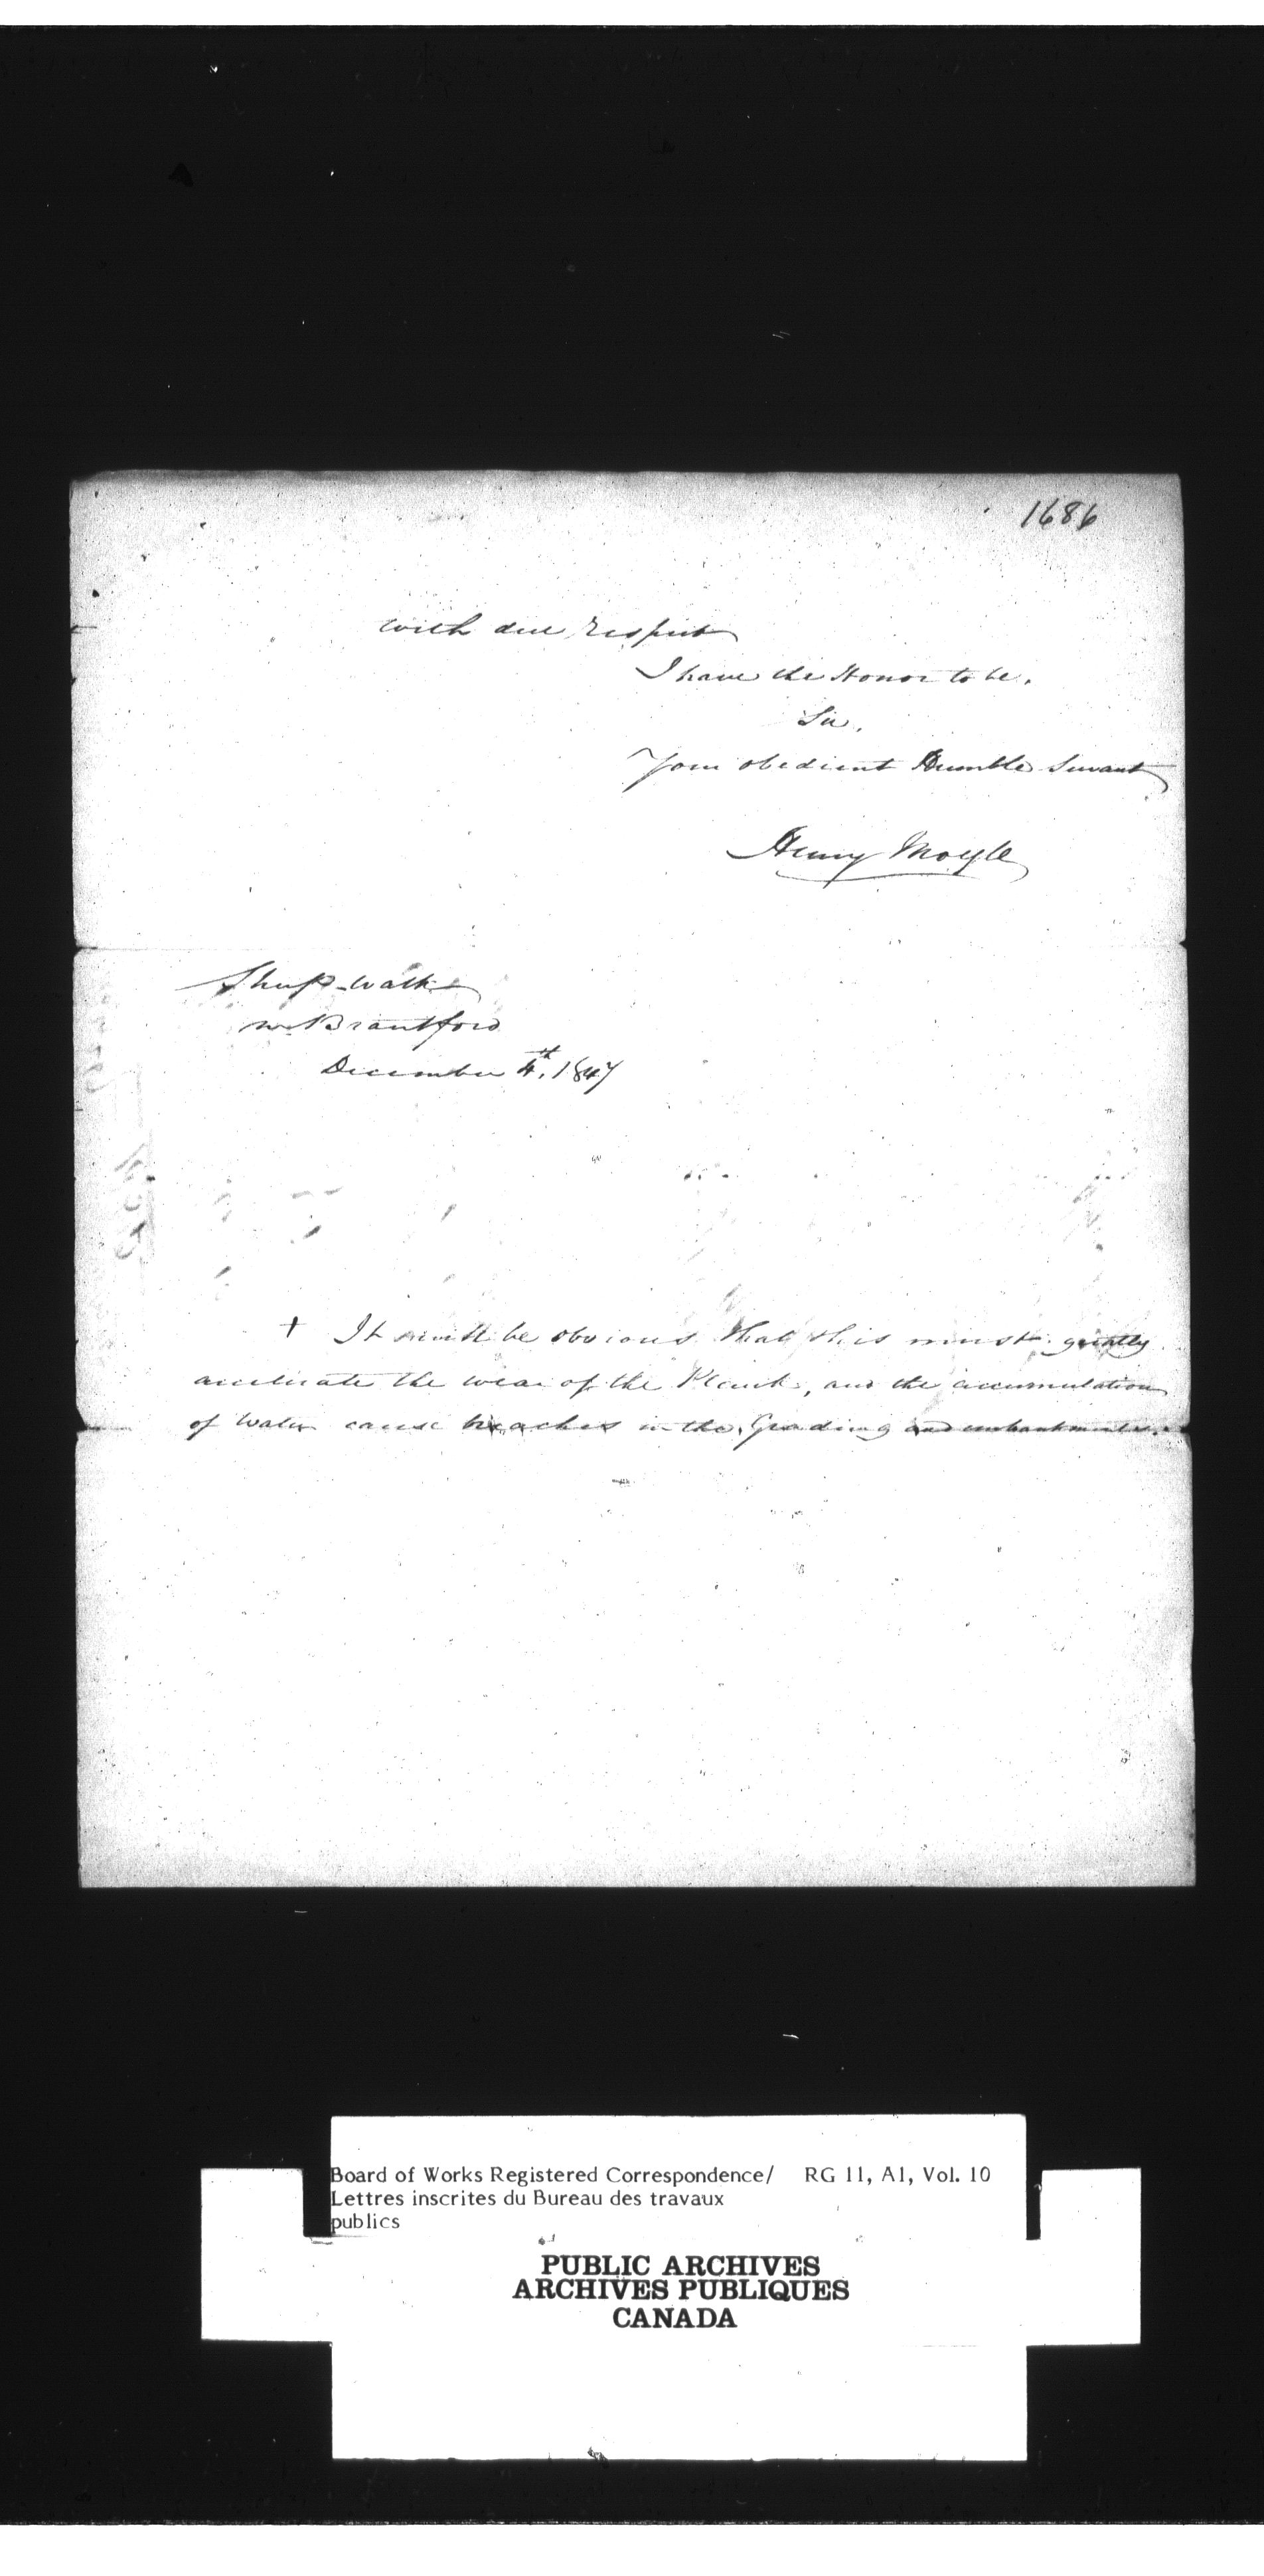 1686
with due respect
I have the Honor to be,
Sir,
Your obedient Humble Servant
Henry Moyle
Sheep-Walk
nr Brantford
December 4th, 1847
+ It will be obvious that this must greatly
accelerate the wear of the Plank, and the accumulation
of Water cause breaches in the Grading and embankments.
Board of Works Registered Correspondence/ RG 11, A1, Vol. 10
Lettres inscrites du Bureau des travaux
publics
PUBLIC ARCHIVES
ARCHIVES PUBLIQUES
CANADA